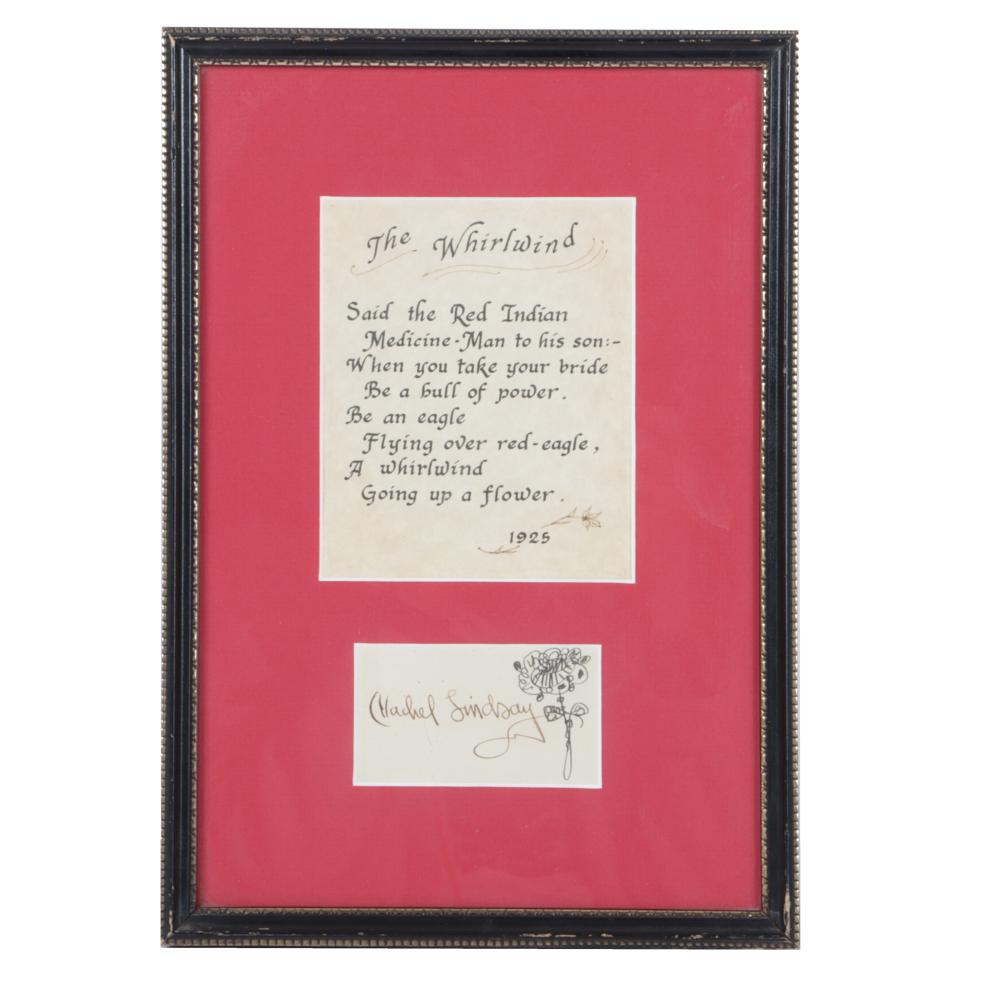 The Whirlwind
Said the Red Indian
Medicine-Man to his son:-
When you take your bride
Be a bull of power.
Be an eagle
Flying over red-eagle,
A whirlwind
Going up a flower.
1925
Vachel Lindsay